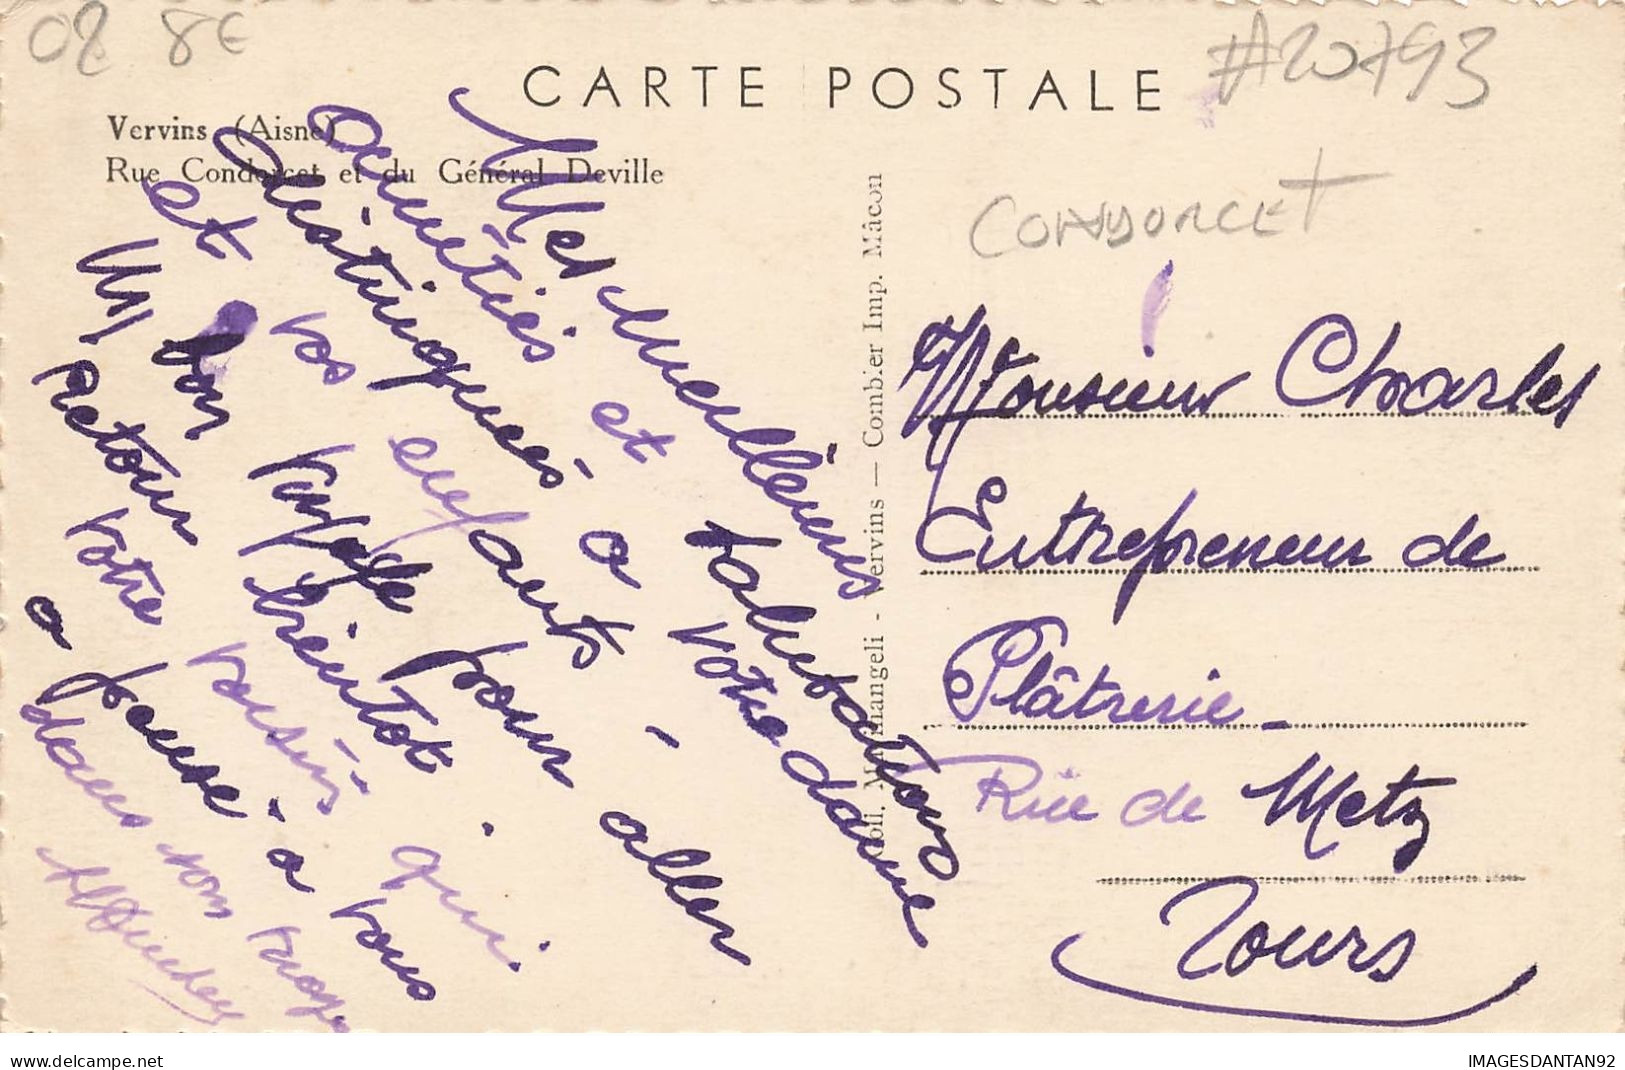 02 8E
#20793
CARTE POSTALE
Vervins (Aisne)
Rue Condorcet et du Général Deville
CONDORCET
Coll. Vervins — Combier Imp. Mâcon
Mes meilleures salutations
amitiés et a votre dame
distingués
et vos enfants -
Un bon voyage pour aller
Retour bientot.
votre voisin qui
a pensé à vous
dans son voyage
Monsieur Charles
Entrepreneur de
Plâtrerie -
Rue de Metz
Tours
delcampe.net
IMAGESDANTAN92